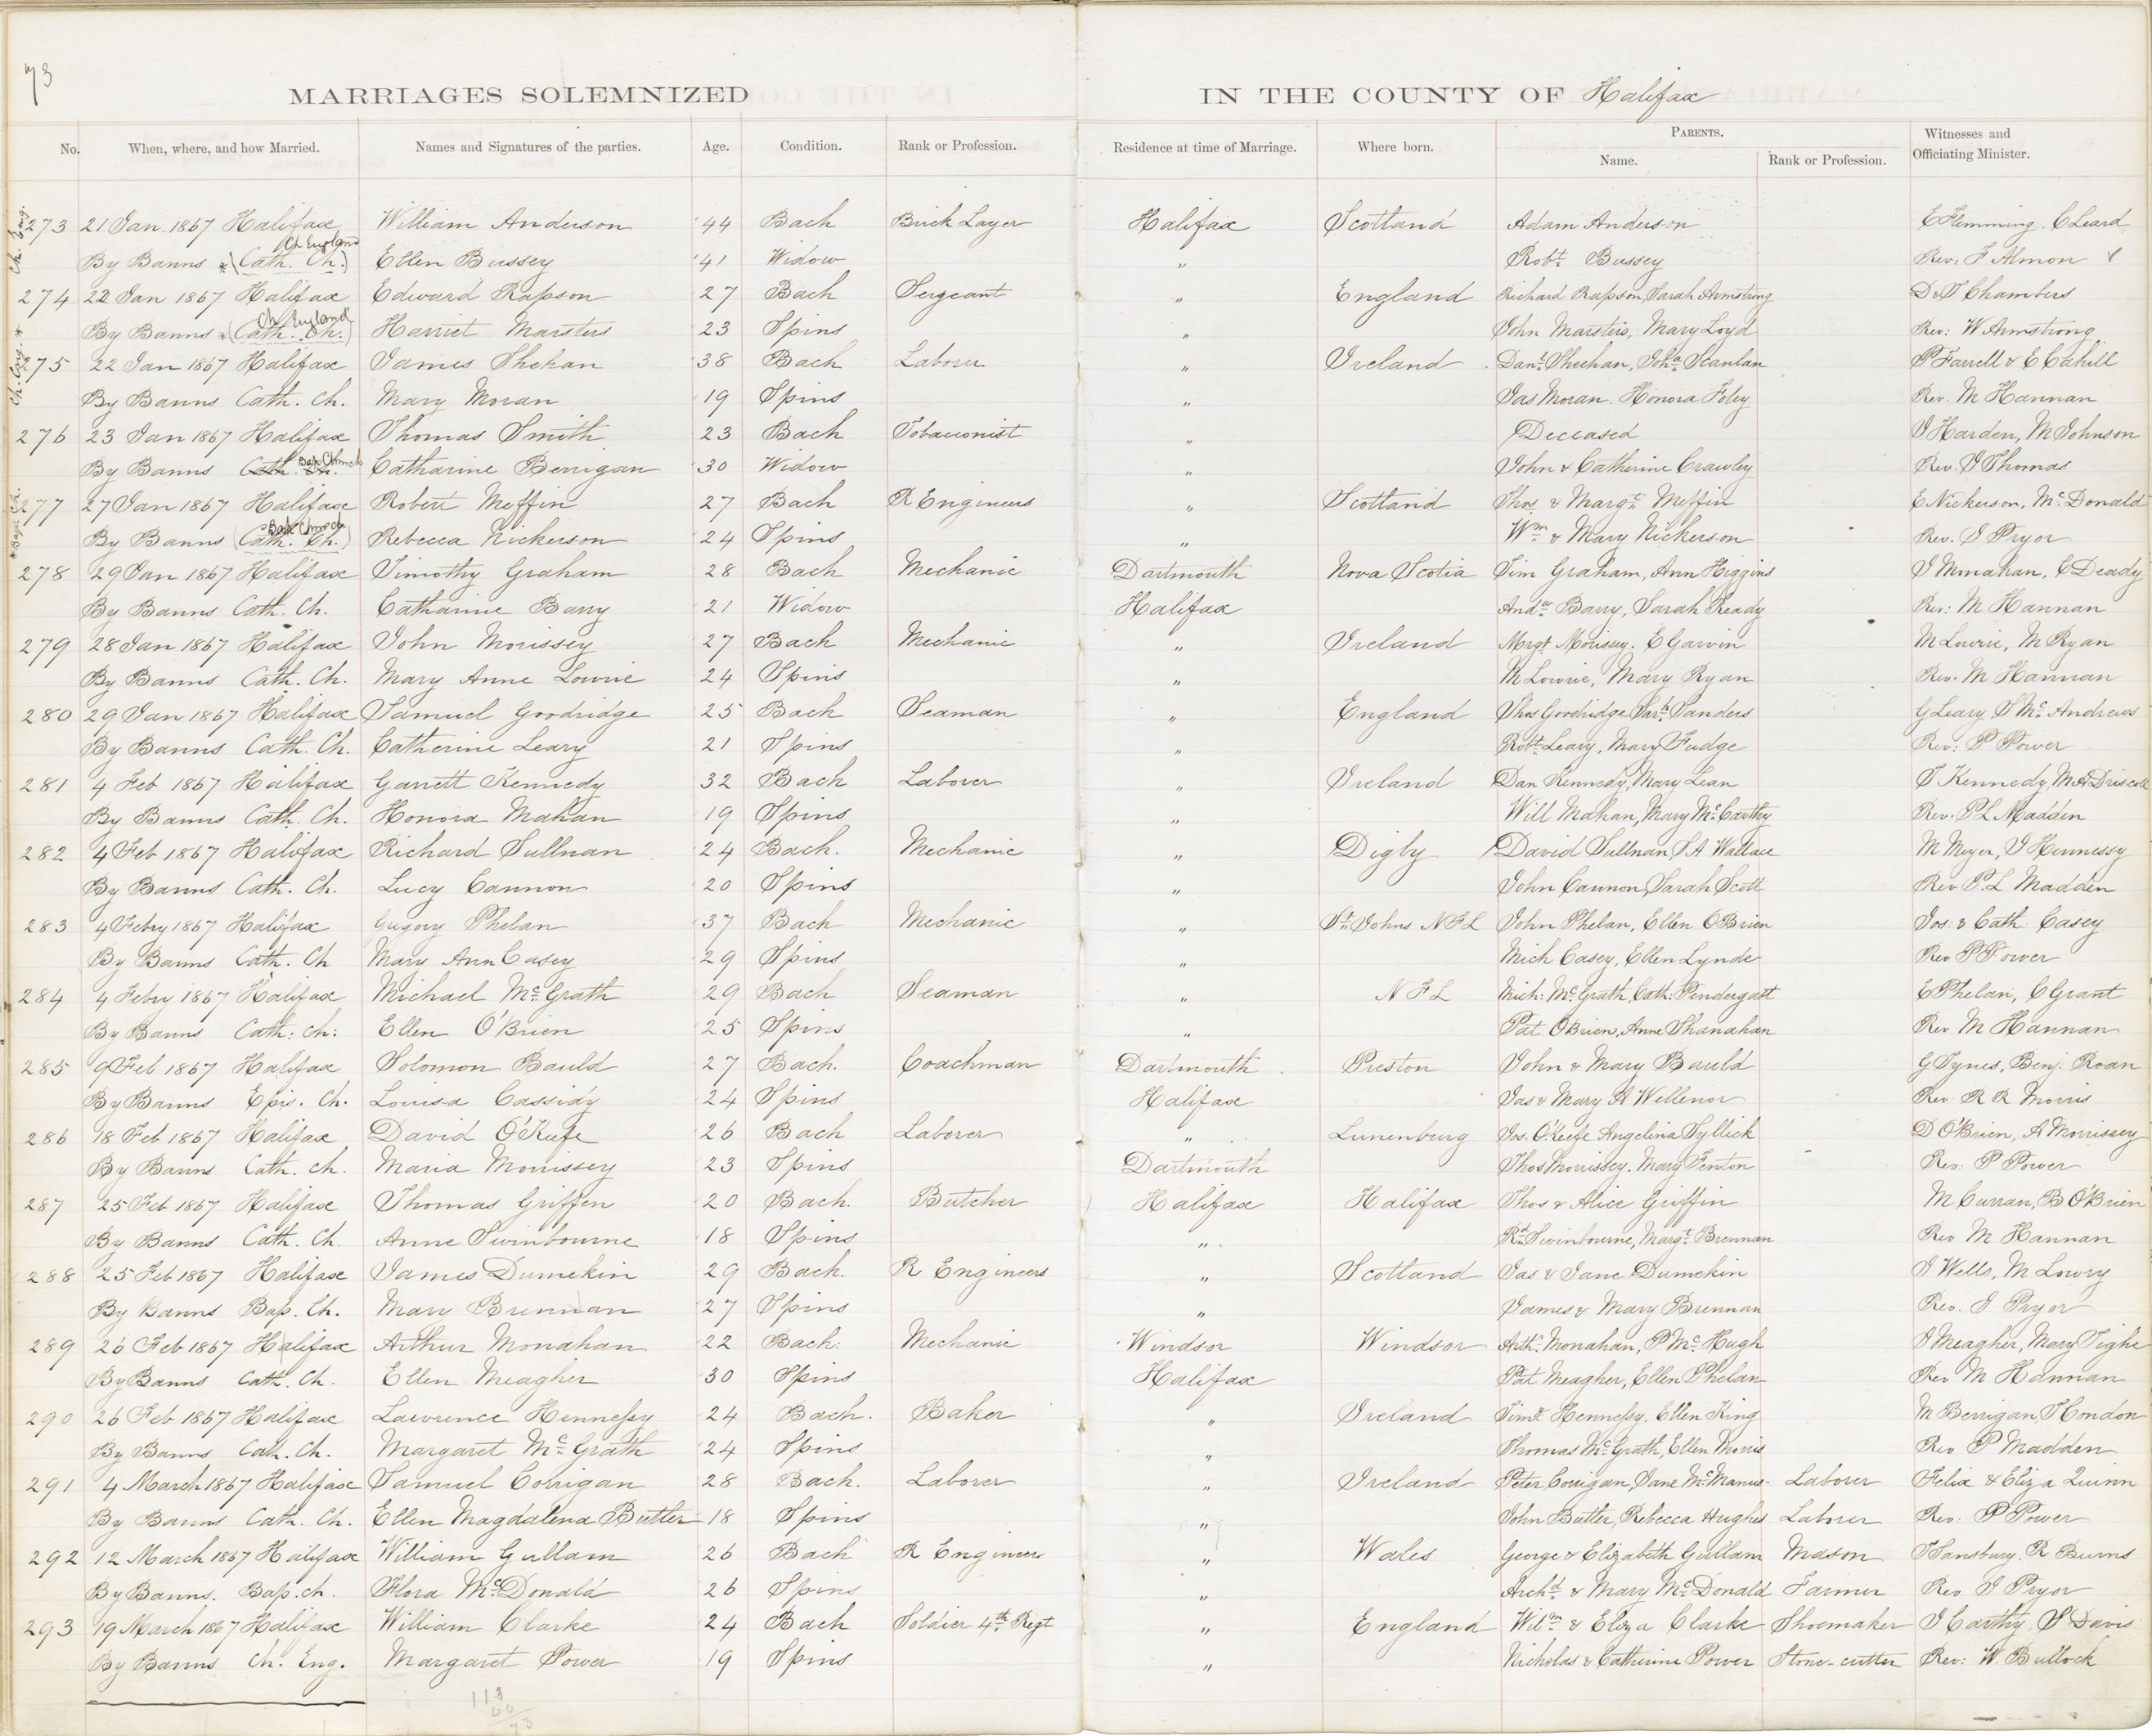 73
MARRIAGES SOLEMNIZED IN THE COUNTY OF Halifax
No. When, where, and how Married. Names and Signatures of the parties. Age. Condition. Rank or Profession. Residence at time of Marriage. Where born. PARENTS. Name. Rank or Profession. Witnesses and Officiating Minister.
Ch. Eng. 273 21 Jan. 1867 Halifax William Anderson 44 Bach Brick Layer Halifax Scotland Adam Anderson E Flemming. C Leard
Ch England
By Banns * (Cath. Ch.) Ellen Bussey 41 Widow " Robt. Bussey Rev: F Almon
274 22 Jan 1867 Halifax Edward Rapson 27 Bach Sergeant " England Richard Rapson, Sarah Armstrong D & J Chambers
Ch England
By Banns * (Cath. Ch.) Harriet Marsters 23 Spins " John Marsters, Mary Loyd Rev: W Armstrong
Ch. Eng. * 275 22 Jan 1867 Halifax James Shehan 38 Bach Laborer " Ireland Danl. Sheehan, Joha. Scanlan P Farrell & E Cahill
By Banns Cath. Ch. Mary Moran 19 Spins " Jas Moran. Honora Foley Rev. M Hannan
276 23 Jan 1867 Halifax Thomas Smith 23 Bach Tobacconist " Deceased J Harden, M Johnson
Bap Church
By Banns Cath. Ch. Catharine Berrigan 30 Widow " John & Catherine Crawley Rev. J Thomas
* Bap. Ch. 277 27 Jan 1867 Halifax Robert Meffin 27 Bach R Engineers " Scotland Thos. & Margt. Meffin E Nickerson, Mc. Donald
Bap Church
By Banns (Cath. Ch.) Rebecca Nickerson 24 Spins " Wm. & Mary Nickerson Rev. J Pryor
278 29 Jan 1867 Halifax Timothy Graham 28 Bach Mechanic Dartmouth Nova Scotia Tim Graham, Ann Higgins J Monahan, C Deady
By Banns Cath. Ch. Catharine Barry 21 Widow Halifax Andw. Barry, Sarah Ready Rev: M Hannan
279 28 Jan 1867 Halifax John Morissey 27 Bach Mechanic " Ireland Mrgt Morissey. E Garvin M Lowrie, M Ryan
By Banns Cath. Ch. Mary Anne Lowrie 24 Spins " M Lowrie, Mary Ryan Rev. M Hannan
280 29 Jan 1867 Halifax Samuel Goodridge 25 Bach Seaman " England Thos Goodridge Sarh. Sanders G Leary S Mc. Andrews
By Banns Cath. Ch. Catherine Leary 21 Spins " Robt. Leary, Mary Fudge Rev: P Power
281 4 Feb 1867 Halifax Garrett Kennedy 32 Bach Laborer " Ireland Dan Kennedy, Mary Lean T Kennedy, M A Driscoll
By Banns Cath. Ch. Honora Mahan 19 Spins " Will Mahan, Mary Mc. Carthy Rev. P L Madden
282 4 Feb 1867 Halifax Richard Sullnan 24 Bach. Mechanic " Digby David Sullnan, S A Wallace M Meyer, J Hennessy
By Banns Cath. Ch. Lucy Cannon 20 Spins " John Cannon, Sarah Scott Rev P. L Madden
283 4 Febry 1867 Halifax Gregory Phelan 37 Bach Mechanic " St. Johns NFL John Phelan, Ellen O'Brien Jos. & Cath. Casey
By Banns Cath. Ch Mary Ann Casey 29 Spins " Mich Casey, Ellen Lynde Rev P Power
284 4 Febry 1867 Halifax Michael Mc. Grath 29 Bach Seaman " NFL Mich: Mc. Grath, Cath: Pendergatt E Phelan, C Grant
By Banns Cath: Ch: Ellen O'Brien 25 Spins " Pat O'Brien, Anne Shanahan Rev M Hannan
285 9 Feb 1867 Halifax Solomon Bauld 27 Bach. Coachman Dartmouth Preston John & Mary Bauld G Tynes, Benj. Roan
By Banns Epis. Ch. Louisa Cassidy 24 Spins Halifax Jas & Mary A Wellenor Rev R R Morris
286 18 Feb 1867 Halifax David O'Keefe 26 Bach Laborer " Lunenburg Jos. O'Keefe Angelina Syllick D O'Brien, A Morrissey
By Banns Cath. Ch. Maria Morrissey 23 Spins Dartmouth Thos Morrissey. Mary Fenton Rev: P Power
287 25 Feb 1867 Halifax Thomas Griffen 20 Bach. Butcher Halifax Halifax Thos & Alice Griffin M Curran, B O'Brien
By Banns Cath. Ch. Anne Swinbourne 18 Spins " Rd. Swinbourne, Margt. Brennan Rev M Hannan
288 25 Feb 1867 Halifax James Dumekin 29 Bach. R Engineers " Scotland Jas & Jane Dumekin J Wells, M Lowry
By Banns Bap. Ch. Mary Brennan 27 Spins " James & Mary Brennan Rev. J Pryor
289 26 Feb 1867 Halifax Arthur Monahan 22 Bach: Mechanic Windsor Windsor Arth. Monahan, P Mc. Hugh J Meagher, Mary Tighe
By Banns Cath. Ch. Ellen Meagher 30 Spins Halifax Pat Meagher, Ellen Phelan Rev M Hannan
290 26 Feb 1867 Halifax Lawrence Hennessy 24 Bach. Baker " Ireland Timt. Hennessy. Ellen King M Berrigan, T Condon
By Banns Cath. Ch. Margaret Mc. Grath 24 Spins " Thomas Mc. Grath, Ellen Morris Rev P Madden
291 4 March 1867 Halifax Samuel Corrigan 28 Bach. Laborer " Ireland Peter Corrigan, Jane Mc. Manus Laborer Felix & Eliza Quinn
By Banns Cath. Ch. Ellen Magdalena Butler 18 Spins " John Butler, Rebecca Hughes Laborer Rev: P Power
292 12 March 1867 Halifax William Gullam 26 Bach R Engineers " Wales George & Elizabeth Gullam Mason J Sansbury. R Burns
By Banns. Bap. Ch. Flora Mc. Donald 26 Spins " Archd. & Mary Mc. Donald Farmer Rev J Pryor
293 19 March 1867 Halifax William Clarke 24 Bach Soldier 4th. Regt " England Wilm. & Eliza Clarke Shoemaker J Carthy S Davis
By Banns Ch. Eng. Margaret Power 19 Spins " Nicholas & Catherine Power Stone-cutter Rev: W. Bullock
113
40
73